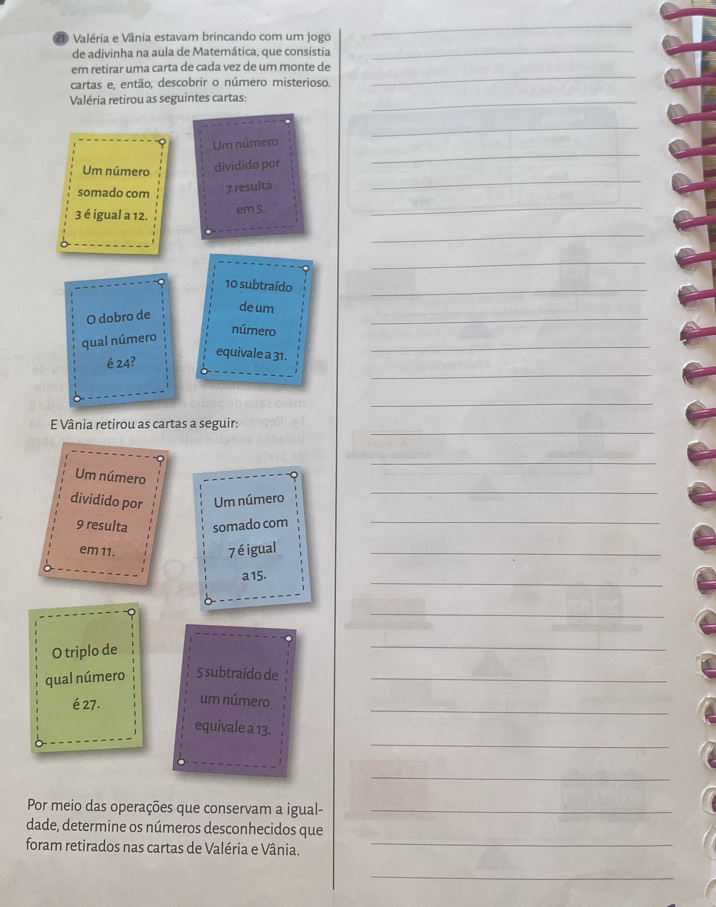 21 Valéria e Vânia estavam brincando com um jogo
de adivinha na aula de Matemática, que consistia
em retirar uma carta de cada vez de um monte de
cartas e, então, descobrir o número misterioso.
Valéria retirou as seguintes cartas:
Um número
somado com
3 é igual a 12.
Um número
dividido por
7 resulta
em 5.
O dobro de
qual número
é 24?
10 subtraído
de um
número
equivale a 31.
E Vânia retirou as cartas a seguir:
Um número
dividido por
9 resulta
em 11.
Um número
somado com
7 é igual
a 15.
O triplo de
qual número
é 27.
5 subtraído de
um número
equivale a 13.
Por meio das operações que conservam a igual-
dade, determine os números desconhecidos que
foram retirados nas cartas de Valéria e Vânia.